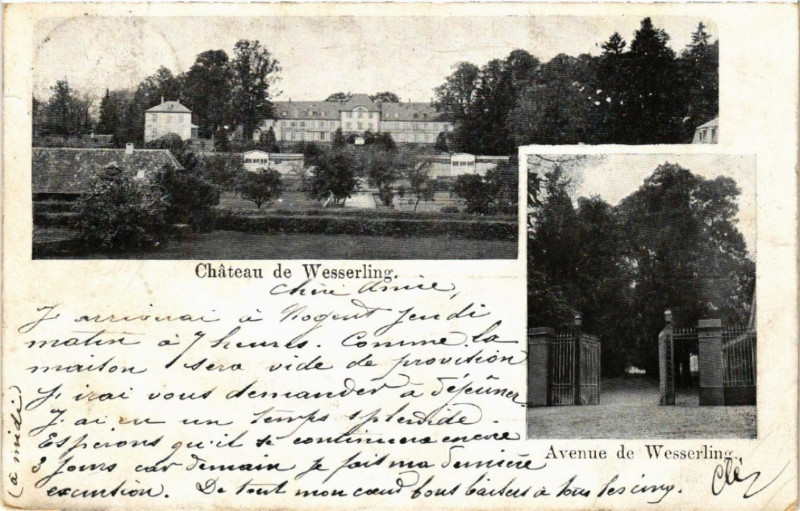 Château de Wesserling.
Chère Amie,
J'arriverai à Nogent Jeudi
matin à 7 heures. Comme la
maison sera vide de provision
J'irai vous demander à déjeuner
J'ai eu un temps splendide.
Espérons qu'il se continuera encore
3 jours car demain je fais ma dernière
excursion. De tout mon cœur bons baisers à tous les cinq.
(à midi)
Avenue de Wesserling.